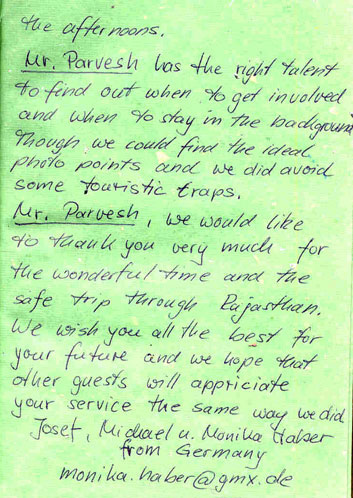 the afternoons.
Mr. Parvesh has the right talent
to find out when to get involved
and when to stay in the background
Though we could find the ideal
photo points and we did avoid
some touristic traps.
Mr. Parvesh, we would like
to thank you very much for
the wonderful time and the
safe trip through Rajasthan.
We wish you all the best for
your future and we hope that
other guests will appriciate
your service the same way we did
Josef, Michael u. Monika Haber
from Germany
monika.haber@gmx.de